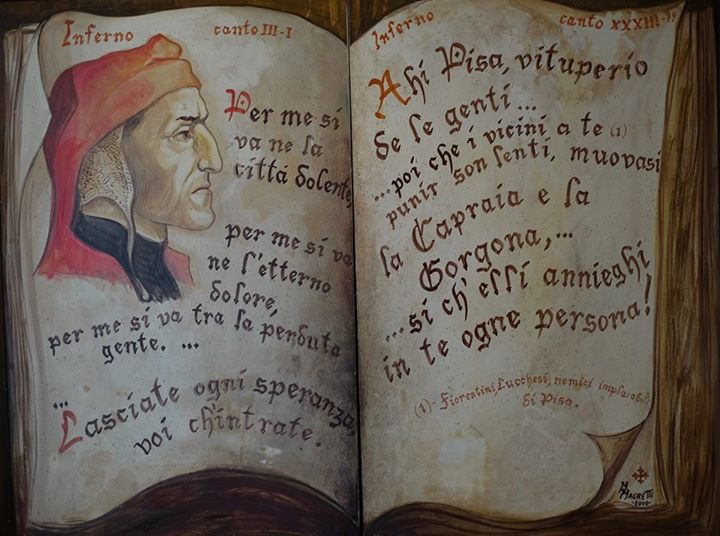 Inferno canto III-I
Per me si
va ne la
città dolente,
per me si va
ne l'etterno
dolore,
per me si va tra la perduta
gente. ...
...
Lasciate ogni speranza,
voi ch'intrate.
Inferno canto XXXIII-79
Ahi Pisa, vituperio
de le genti...
...poi che i vicini a te (1)
punir son lenti, muovasi
la Capraia e la
Gorgona,...
...sì ch'elli annieghi
in te ogne persona!
(1)- Fiorentini, Lucchesi, nemici implacabili
di Pisa.